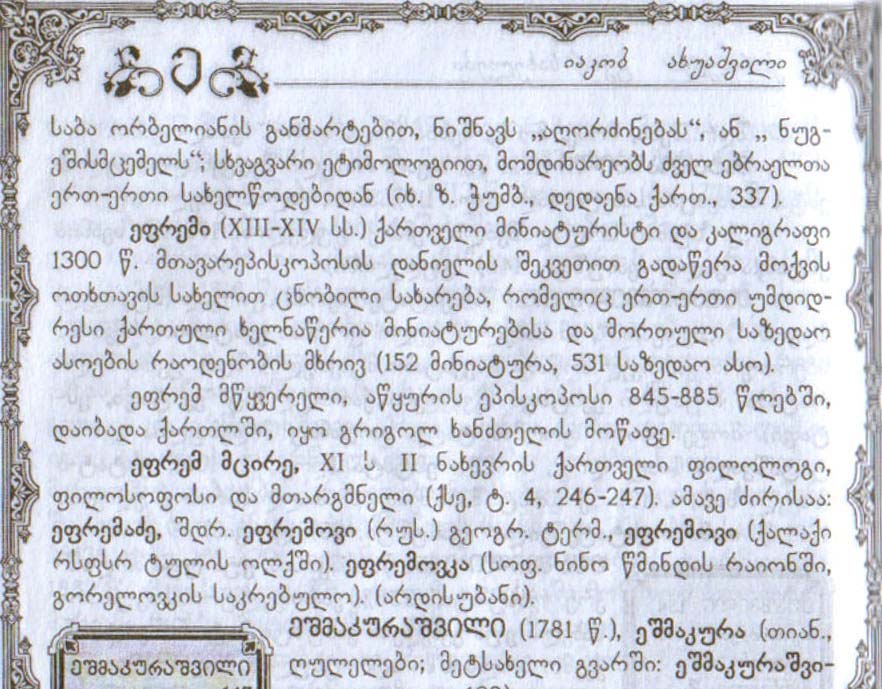 ე
იაკობ ახუაშვილი
საბა ორბელიანის განმარტებით, ნიშნავს „აღორძინებას“, ან „ ნუგ-
ეშისმცემელს“; სხვაგვარი ეტიმოლოგიით, მომდინარეობს ძველ ებრაელთა
ერთ-ერთი სახელწოდებიდან (იხ. ზ. ჭუმბ., დედაენა ქართ., 337).
ეფრემი (XIII-XIV სს.) ქართველი მინიატურისტი და კალიგრაფი
1300 წ. მთავარეპისკოპოსის დანიელის შეკვეთით გადაწერა მოქვის
ოთხთავის სახელით ცნობილი სახარება, რომელიც ერთ-ერთი უმდიდ-
რესი ქართული ხელნაწერია მინიატურებისა და მორთული საზედაო
ასოების რაოდენობის მხრივ (152 მინიატურა, 531 საზედაო ასო).
ეფრემ მწყვერელი, აწყურის ეპისკოპოსი 845-885 წლებში,
დაიბადა ქართლში, იყო გრიგოლ ხანძთელის მოწაფე.
ეფრემ მცირე, XI ს. II ნახევრის ქართველი ფილოლოგი,
ფილოსოფოსი და მთარგმნელი (ქსე, ტ. 4, 246-247). ამავე ძირისაა:
ეფრემაძე, შდრ. ეფრემოვი (რუს.) გეოგრ. ტერმ., ეფრემოვი (ქალაქი
რსფსრ ტულის ოლქში). ეფრემოვკა (სოფ. ნინო წმინდის რაიონში,
გორელოვკის საკრებულო). (არდისუბანი).
ეშმაკურაშვილი (1781 წ.), ეშმაკურა (თიან.,
ეშმაკურაშვილი
ღულელები; მეტსახელი გვარში: ეშმაკურაშვი-